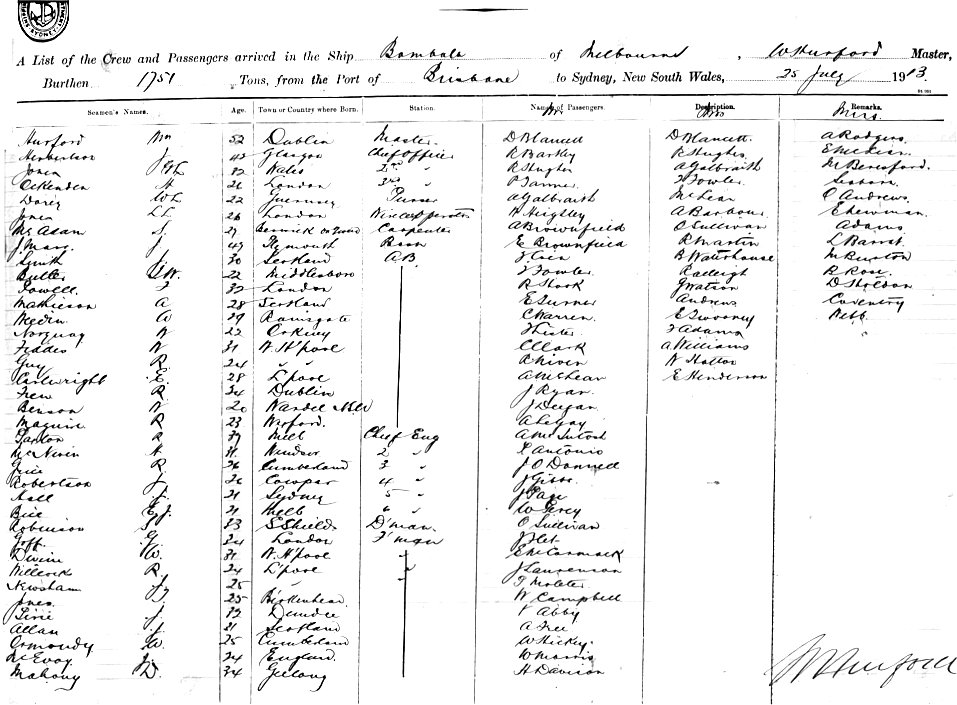 A List of the Crew and Passengers arrived in the Ship Bombala of Melbourne, W Hurford Master,
Burthen 1751 Tons, from the Port of Brisbane to Sydney, New South Wales, 25 July 1913.
Seamen's Names. Age. Town or Country where Born. Station. Names of Passengers. Description. Remarks.
Mr Mrs Miss
Hurford Wm 52 Dublin Master D Blanett D Blanett A Rodgers
Henderson J 42 Glasgow Chief Officer R Barkly R Hughes
Jones 32 Wales 2nd " R Hughes A Galbraith M Beresford
Ockenden H 26 London 3rd " P Tanner Fowler
Dorey 22 Guernsey Purser A Galbraith McLean C Andrews
Jones 26 London Wireless operator H Highley A Barbour E Newman
McAdam S. 27 Carpenter A Brownfield O Sullivan Adams
J. Marg. J 47 Plymouth Bosn E Brownfield R Martin L Barrat
Smith J 30 Scotland A.B B Waterhouse M Burton
Butler G.W. 22 Middlesboro Fowler Raleigh R Rose
Powell 32 London R Stook G Watson D Holdon
Mathieson A 28 Scotland E Turner Andrews Coventry
Weedin A 29 Ramsgate C Warren E Swooney Webb
Norquay W 22 Orkney Lister F Adams
Feddes W 31 W. H'pool C Clark A Williams
Guy R. 24 " R Niven W Hatton
Cartwright E. 28 L'pool A McLean E Henderson
Frew R 34 Dublin J Ryan
Benson W 20 J Deegan
Maguire R 23 Wexford. A LeGay
Parkon R 39 Melb Chief Eng A McIntosh
McNevin H 31 Windsor 2 " E Antonio
Grice R 26 Cumberland 3 " J O'Donnell
Robertson J 26 Cowper 4 " J Gibbs
Hall J. 21 Sydney 5 " J Page
Bice E.J. 21 Melb 6 " W Grey
Robinson S 33 S Shields D'man. O Sullivan
Goff G. 34 London F'man
Devine W. 31 W. H'pool " E McCormack
Willcock R. 24 L'pool " J Laurenson
Newsham 25 "
Jones 25 Birkenhead W Campbell
Pirie J 32 Dundee V Abby
Allan J 31 Scotland A Free
Ormondy W. 25 Cumberland W Hickey
McEvoy 34 England W Morris
Mahony D. 34 Geelong H Davison
W Hurford